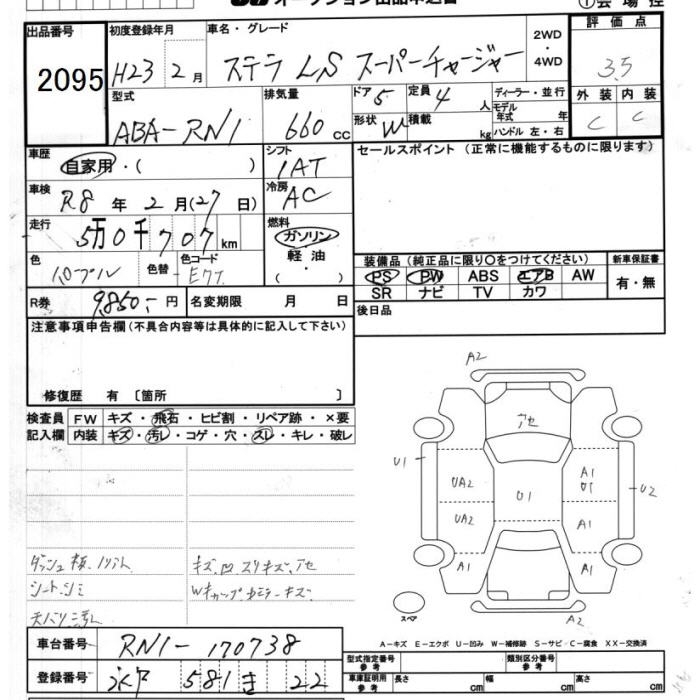 オークション出品申込書
①会場控
出品番号 初度登録年月 車名・グレード 2WD ・ 4WD 評価点
2095 H23 2月 ステラ LS スーパーチャージャー 3.5
型式 排気量 ドア 5 定員 4人 ディーラー・並行 外装 内装
ABA-RN1 660 cc 形状 W 積載 kg モデル年式 年 C C
ハンドル 左・右
車歴 シフト セールスポイント(正常に機能するものに限ります)
自家用・( ) IAT
車検 冷房
R8 年 2 月(27 日) AC
走行 燃料
5万0千707km ガソリン
色 色替 色コード 軽油 装備品(純正品に限り○をつけてください) 新車保証書
パープル ・( ) PS PW ABS エアB AW 有・無
SR ナビ TV カワ
R券 9,850.- 円 名変期限 月 日 後日品
注意事項申告欄(不具合内容等は具体的に記入して下さい)
修復歴 有 〔箇所 〕
検査員 FW キズ・飛石・ヒビ割・リペア跡・×要
記入欄 内装 キズ・汚レ・コゲ・穴・スレ・キレ・破レ
A2
アセ
U1 UA2 U1 A1 U1 U2
UA2 A1
A1 A1
A2
スペア
シートシミ
A-キズ E-エクボ U-凹み W-補修跡 S-サビ C-腐食 XX-交換済
車台番号 RN1-170738
型式指定番号 参考 類別区分番号 参考
登録番号 581 き 22
車庫証明用 参考 長さ cm 幅 cm 高さ cm